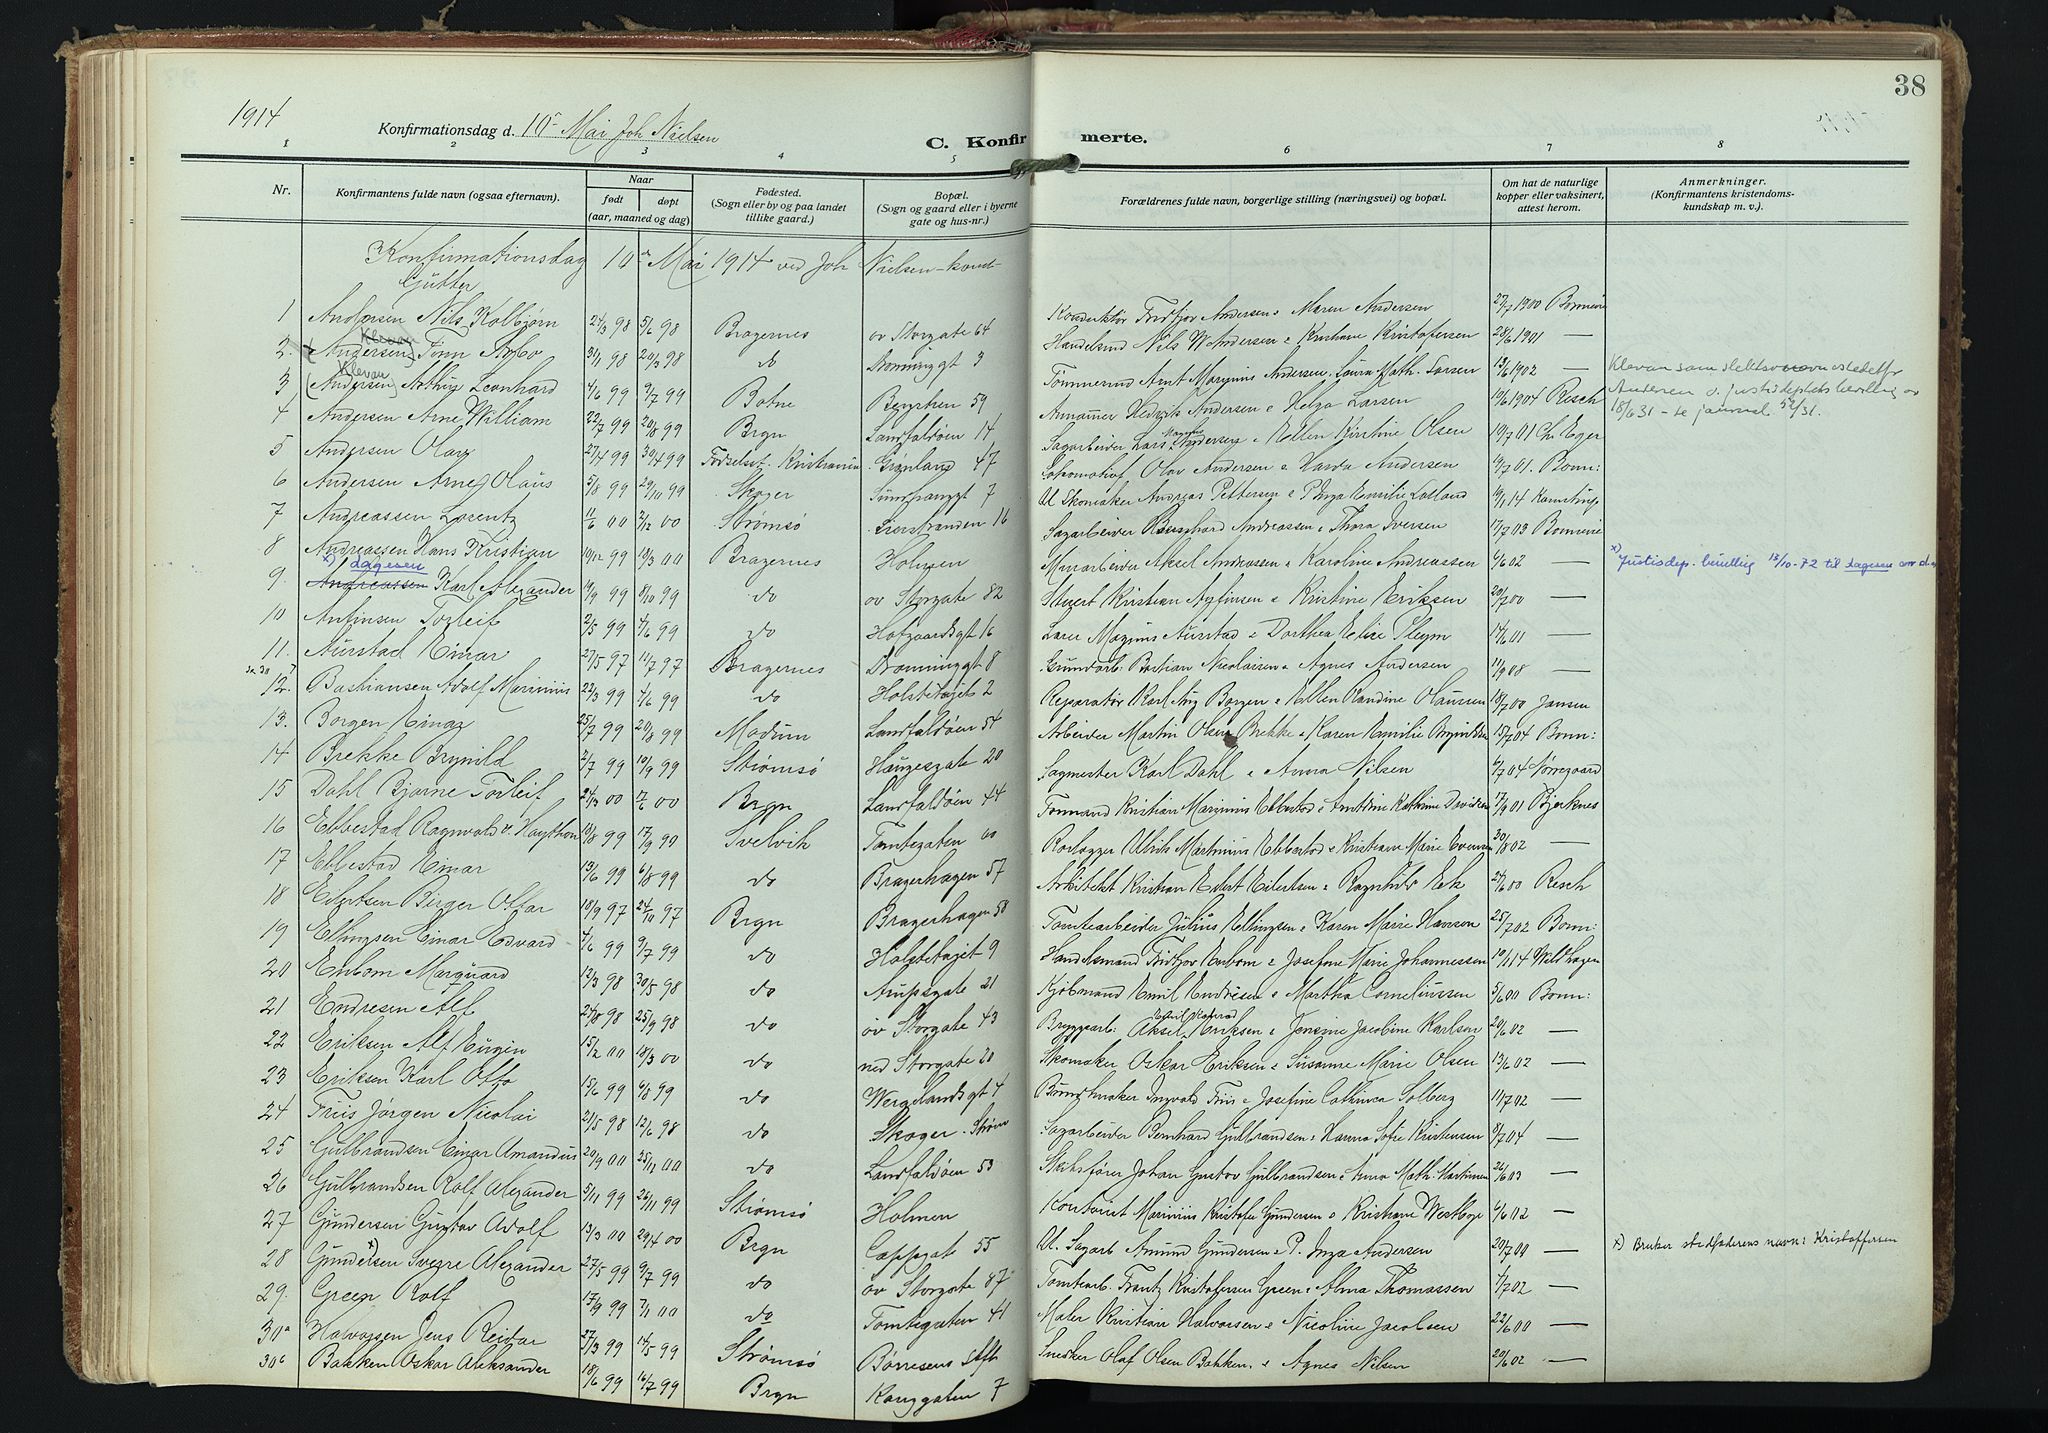 38
1914
Konfirmationsdag d. 10de Mai Joh Nielsen
C. Konfirmerte.
1 2 3 4 5 6 7 8
Nr. Konfirmantens fulde navn (ogsaa efternavn). Naar født døpt (aar, maaned og dag) Fødested. (Sogn eller by og paa landet tillike gaard.) Bopæl. (Sogn og gaard eller i byerne gate og hus-nr.) Forældrenes fulde navn, borgerlige stilling (næringsvei) og bopæl. Om hat de naturlige kopper eller vaksinert, attest herom. Anmerkninger. (Konfirmantens kristendoms-kundskap m. v.).
Konfirmationsdag 10de Mai 1914 ved Joh Nielsen
Gutter
1 Andersen Nils Kolbjørn 24/3 98 5/6 98 Bragernes øv Storgate 64 Konduktør Fridtjov Andersen & Maren Andersen 27/7 1900
2. Andersen Klevan Finn Arbo 31/1 98 20/3 98 do Dronninggt 3 Handelsmd Nils Andersen & Kristiane Kristofersen 28/6 1901 —
3 (Andersen) Klevan Arthur Leonhard 4/6 99 9/7 99 Botne 59 Tømmermd Arnt Marinius Andersen, Laura Math. Larsen 13/6 1902 — Klevan som slektsnavn istedetfor
4 Andersen Arne William 22/7 99 20/8 99 Brgn Landfaldøen 14 Andersen & Helga Larsen 19/6 1904 Resch Andersen d. justisdeptets bevilling av
18/6 31 - se journal 52/31.
5 Andersen Olav 27/4 99 30/4 99 Fødselsst. Kristiania Grønland 47 Sagarbeider Lars Magnus Andersen & Ellen Kirstine Olsen 19/7 01 Chr Eger
6 Andersen Arne Olaus 5/8 99 29/10 99 Skoger 7 Lokomotivf Olav Andersen & Harda Andersen 19/7 01. Bonn:
7 Andreassen Lorentz 11/6 00 2/12 00 Strømsø Lierstranden 16 Ul Skomaker Andreas Pettersen & P Inga Emilie 19/1 14
8 Andreassen Hans Kristian 10/12 99 18/3 00 Bragernes Holmen Sagarbeider Bernhard Andreassen & Thora Iversen 17/7 03
9. x) dagesen Andreassen Karl Alexander 19/9 99 8/10 99 do øv Storgate 82 Murarbeider Aksel Andreassen & Karoline Andreassen 6/6 02 — x) Justisdep. bevilling 13/10-72 til dagesen
10 Anfinsen Torleif 2/5 99 4/6 99 do Hofgaardsgt 16 Kristian Anfinsen & Kristine Eriksen 20/7 00 —
11. Aurstad Einar 27/5 97 11/7 97 Bragernes Dronninggt 8 Lærer Magnus Aurstad & Dorthea Elise Pleym 14/6 01 —
12. Bastiansen Adolf Marinius 22/3 99 4/6 99 do Holstetajet 2 Grundarb: Bastian Nicolaisen & Agnes Andersen 11/9 08 —
13. Borgen Einar 25/7 99 20/8 99 Modum Landfaldøen 54 Reparatør Karl Aug Borgen & Ellen Randine Olaussen 18/7 00 Jansen
14 Brekke Brynild 2/7 99 10/9 99 Strømsø Haugesgate 20 Arbeider Martin Olsen Brekke & Karen Emilie Brynildsen 15/7 04 Bonn:
15 Dahl Bjarne Torleif 24/3 00 17/6 00 Brgn Landfaldøen 44 Sagmester Karl Dahl & Anna Nilsen 6/7 04 Nørregaard
16 Ebbestad Ragnvald 13/8 99 17/9 99 Svelvik Tomtegaten Formand Kristian Marinius Ebbestad & Kathrine Davidsen 17/9 01 Bjerknes
17 Ebbestad Einar 13/6 99 6/8 99 do Bragerhagen 57 Rorlegger Ulrik Martinius Ebbestad & Kristiane Marie Evensen 30/8 02 —
18 Eilertsen Birger Ottar 18/9 97 24/10 97 Brgn Bragerhagen 58 Arkitekt Kristian Edert Eilertsen & Ragnhild Eek 27/6 00 Resch
19 Ellingsen Einar Edvard 4/6 99 9/7 99 do Holstetajet 9 Tomtearbeider Julius Ellingsen & Karen Marie Hansen 25/7 02 Bonn:
20 Enbom Marquard 13/3 98 30/5 98 do Arupsgate 21 Handelsmand Fridtjov Enbom & Josefine Marie Johannessen 10/1 14 Wildhagen
21 Endresen Alf 27/8 98 25/9 98 do øv Storgate 43 Kjøbmand Emil Endresen & Martha Corneliussen 5/6 00 Bonn:
22 Eriksen Alf Eugen 15/2 00 18/3 00 do ned Storgate 20 Bryggearb: Aksel Eriksen & Jensine Jacobine Karlsen 20/6 02 —
23 Eriksen Karl Otto 15/6 99 6/8 99 do Wergelandsgt 4 Skomaker Oskar Eriksen & Susanne Marie Olsen 13/6 02 —
24 Friis Jørgen Nicolai 21/5 98 12/6 98 do Skoger. Strøm Buntmaker Ingvald Friis & Josefine Cathinca Solberg 11/7 02 —
25 Gulbrandsen Einar Amandus 20/9 00 25/12 00 do Landfaldøen 53 Sagarbeider Bernhard Gulbrandsen & Hanna Sofie Kristensen 8/7 04 —
26 Gulbrandsen Rolf Alexander 5/11 99 26/11 99 Strømsø Holmen Skibsfører Johan Gustav Gulbrandsen & Anna Math. Martinsen 26/6 03 —
27 Gundersen Gustav Adolf 13/3 00 29/4 00 Brgn Cappgate 55 Kontorist Marinius Kristofer Gundersen & Kristiane Westbye 6/6 02 —
28 Gundersen x) Sverre Alexander 27/5 99 9/7 99 do øv Storgate 87 Ul. Sagarb Amund Gundersen & P. Inga Andersen 20/7 00 — x) Bruker stedfaderens navn: Kristoffersen
29. Green Rolf 17/9 99 7/1 00 do Tomtegaten 41 Tomtearb. Frantz Kristofersen Green & Alma Thomassen 4/7 02 —
30a Halvorsen Jens Reidar 27/3 99 14/5 99 Strømsø Børresens Maler Kristian Halvorsen & Nicoline Jacobsen 22/6 00 —
30b Bakken Oskar Aleksander 18/6 99 16/7 99 Brgn Konggaten 7 Snedker Olaf Olsen Bakken. & Agnes Nilsen 20/6 02 —